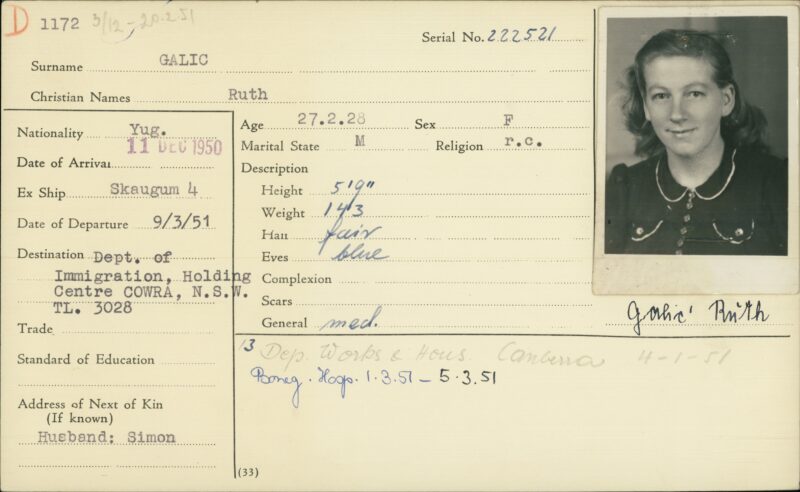 D 1172 3/12 - 20.2.51
Serial No. 222521
Surname GALIC
Christian Names Ruth
Nationality Yug.
Date of Arrival 11 DEC 1950
Ex Ship Skaugum 4
Date of Departure 9/3/51
Destination Dept. of
Immigration, Holding
Centre COWRA, N.S.W.
TL. 3028
Trade
Standard of Education
Address of Next of Kin
(If known)
Husband: Simon
Age 27.2.28 Sex F
Marital State M Religion r.c.
Description
Height 5'9"
Weight 143
Hair fair
Eyes blue
Complexion
Scars
General med.
Galic' Ruth
13 Dep. Works & Hous. Canberra 4-1-51
Boneg. Hosp. 1.3.51 - 5.3.51
(33)